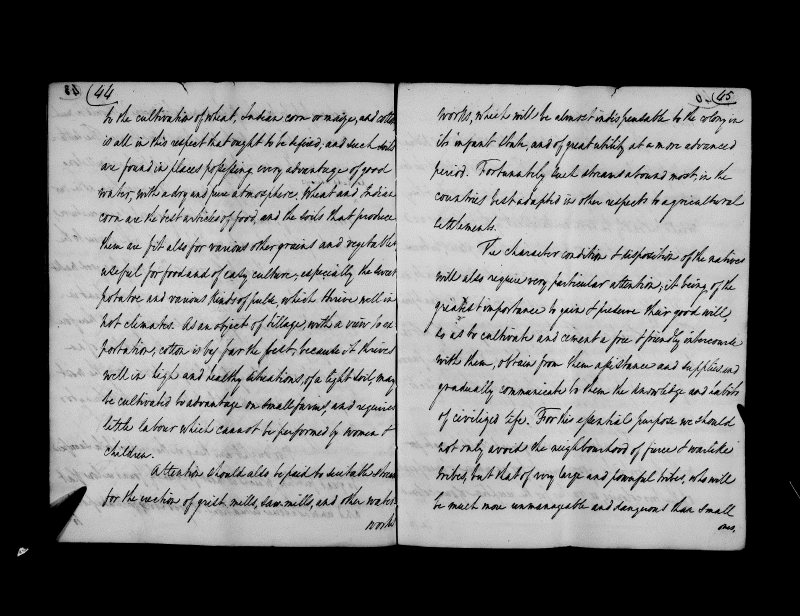 44
to the cultivation of wheat, Indian corn or maize, and cotton
is all in this respect that ought to be desired, and such soils
are found in places possessing every advantage of good
water, with a dry and pure atmosphere. Wheat and Indian
corn are the best articles of food, and the soils that produce
them are fit also for various other grains and vegetables
useful for food and of easy culture, especially the sweet
potatoe and various kinds of pulse, which thrive well in
hot climates. As an object of tillage, with a view to ex
portation, cotton is by far the best, because it thrives
well in high and healthy situations, of a light soil, may
be cultivated to advantage on small farms, and requires
little labour which cannot be performed by women &
children.
Attention should also be paid to suitable streams
for the erection of grist mills, saw mills, and other water
works
45
works, which will be almost indispensable to the colony in
its infant state, and of great utility at a more advanced
period. Fortunately such streams abound most, in the
countries best adapted in other respects to agricultural
settlements.
The character condition & disposition of the natives
will also require very particular attention; it being of the
greatest importance to gain & preserve their good will,
so as to cultivate and cement a free & friendly intercourse
with them, obtain from them assistance and supplies, and
gradually communicate to them the knowledge and habits
of civilized life. For this essential purpose we should
not only avoid the neighbourhood of fierce & warlike
tribes, but that of very large and powerful tribes, who will
be much more unmanageable and dangerous than small
ones,